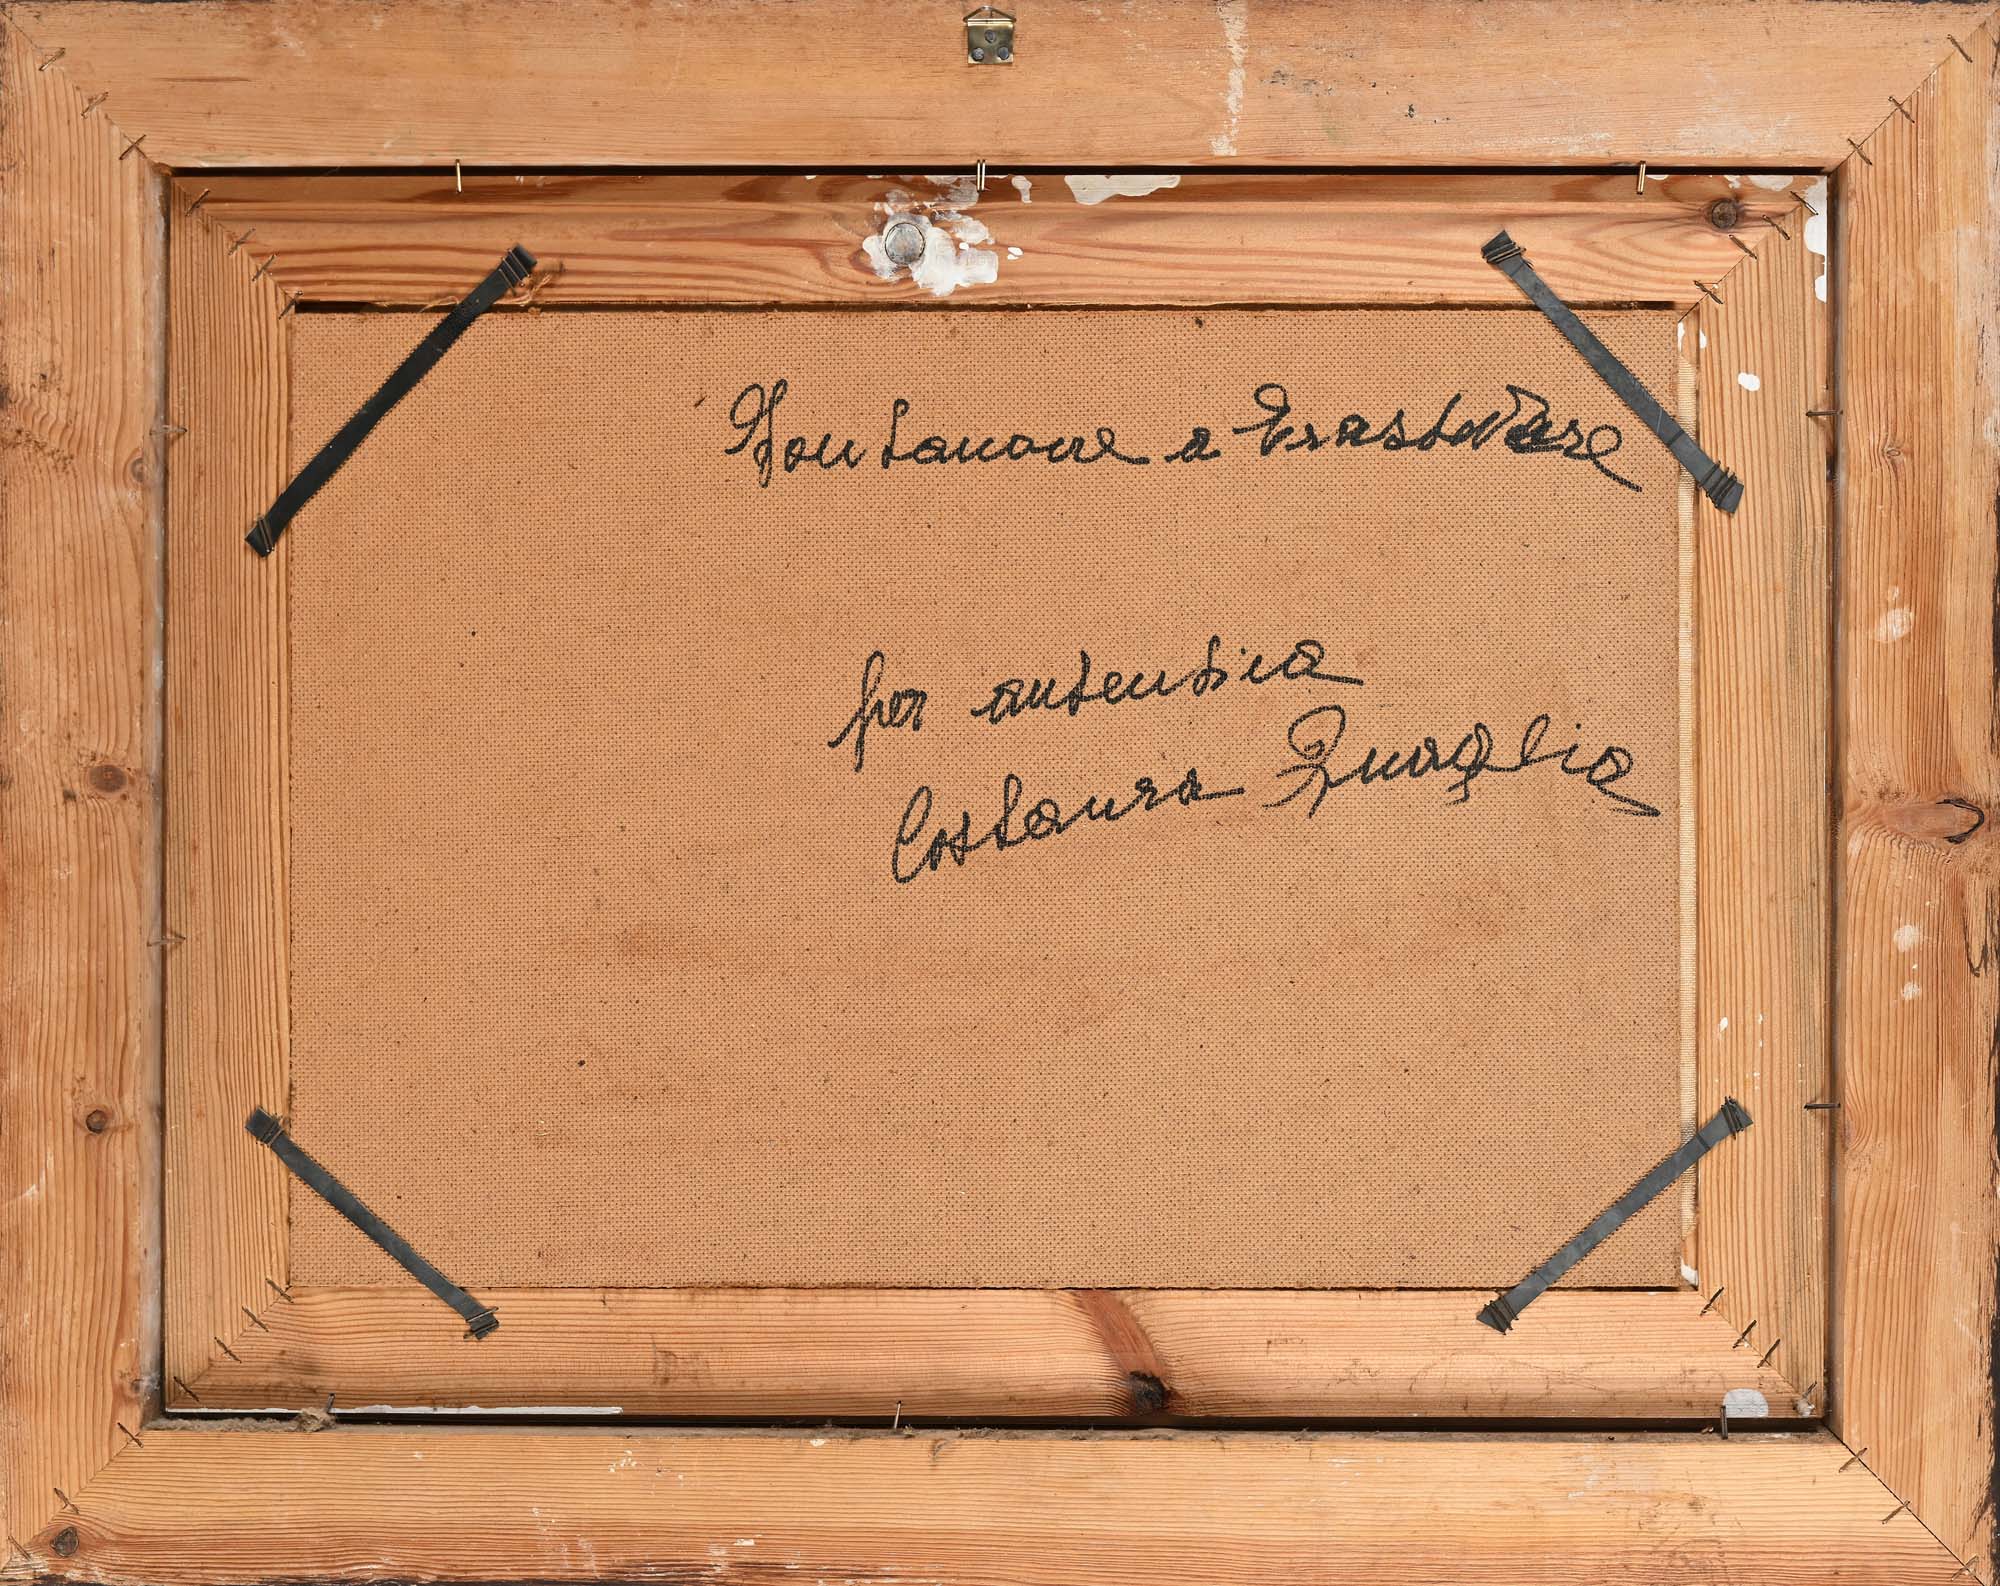 Fontanone a Trastevere
per autentica
Costanza Quaglia